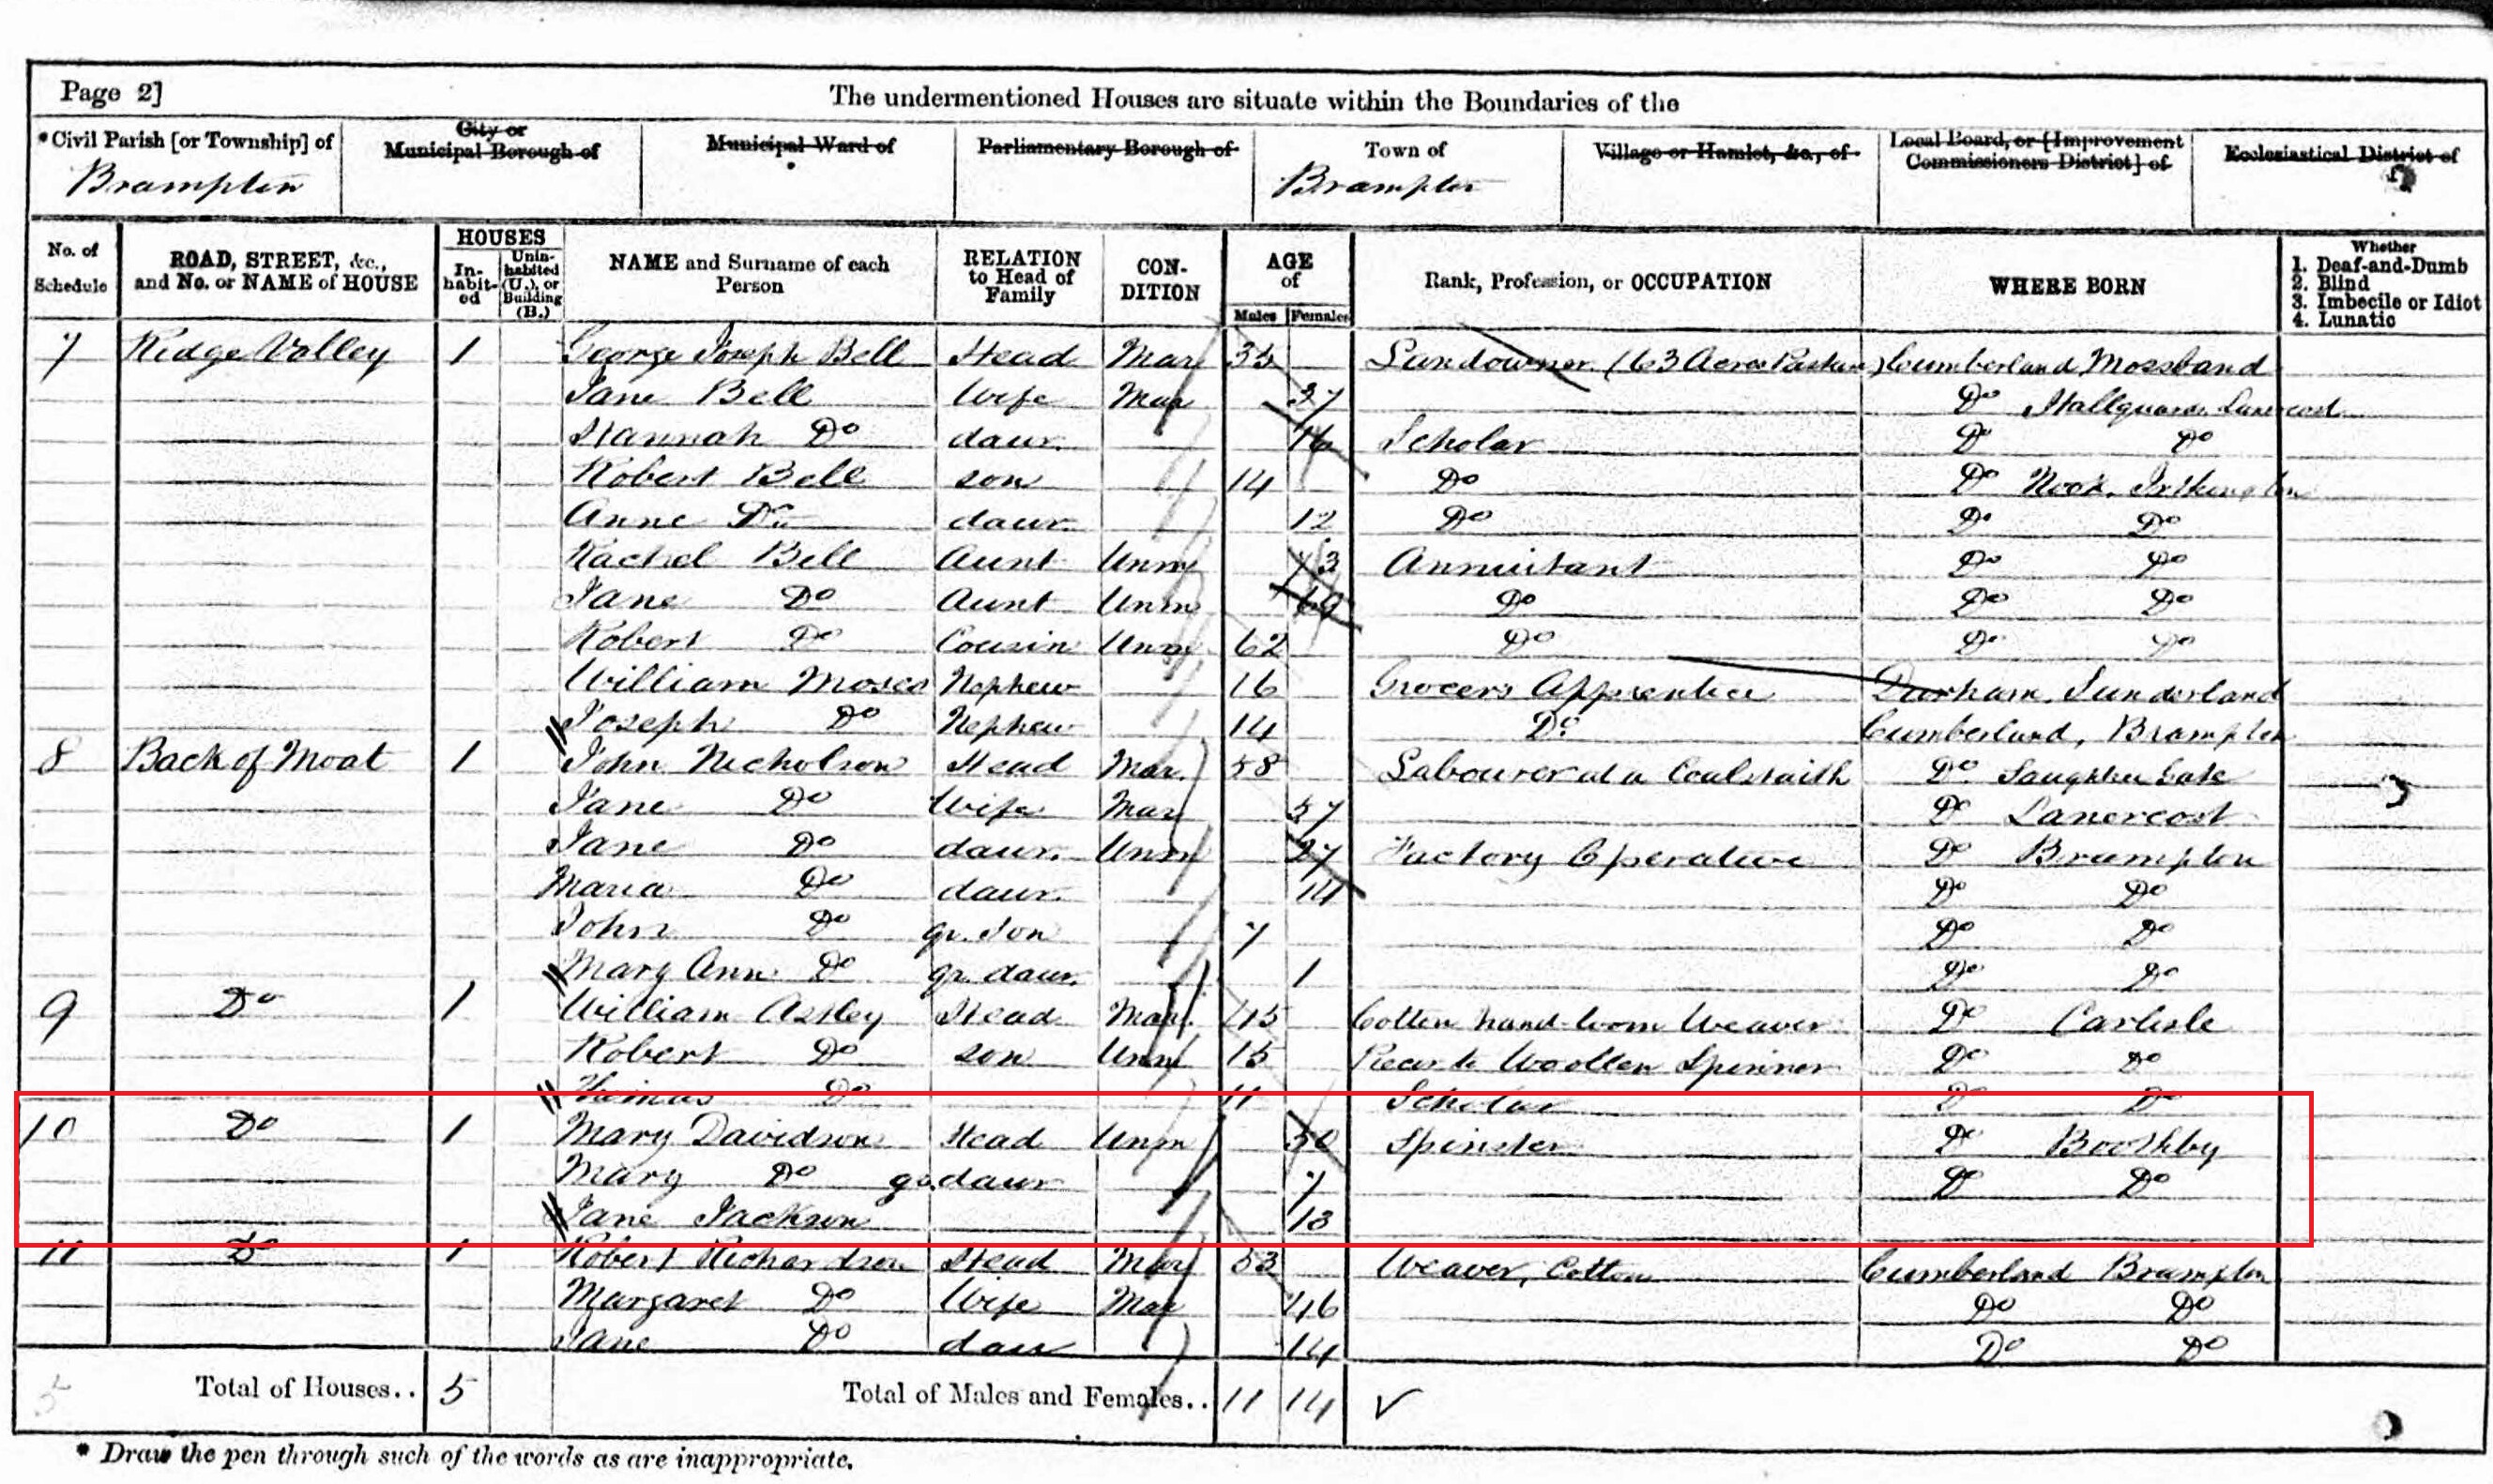 Page 2]
The undermentioned Houses are situate within the Boundaries of the
*Civil Parish [or Township] of City or Municipal Borough of Municipal Ward of Parliamentary Borough of Town of Village or Hamlet, &c., of Local Board, or [Improvement Commissioners District] of Ecclesiastical District of
Brampton Brampton
No. of Schedule ROAD, STREET, &c., and No. or NAME of HOUSE HOUSES Inhabited Uninhabited (U.), or Building (B.) NAME and Surname of each Person RELATION to Head of Family CONDITION AGE of Males Females Rank, Profession, or OCCUPATION WHERE BORN Whether 1. Deaf-and-Dumb 2. Blind 3. Imbecile or Idiot 4. Lunatic
7 Ridge Valley 1 George Joseph Bell Head Mar Landowner (63 Acres Cumberland Mossband
Jane Bell Wife Mar 37 Do Hallguards Lanercost
Hannah Do daur. 16 Scholar Do Do
Robert Bell son 14 Do Do Nook, Irthington
Anne Do daur. 12 Do Do Do
Rachel Bell Aunt Unm 73 Annuitant Do Do
Jane Do Aunt Unm 69 Do Do Do
Robert Do Cousin Unm 62 Do Do Do
William Moses Nephew 16 Grocers Apprentice Durham, Sunderland
Joseph Do Nephew 14 Do Cumberland, Brampton
8 Back of Moat 1 John Nicholson Head Mar. 58 Labourer at a Coalstaith Do
Jane Do Wife Mar 57 Do Lanercost
Jane Do daur. Unm 27 Factory Operative Do Brampton
Maria Do daur. 14 Do Do
John Do gr. son 7 Do Do
Mary Ann Do gr. daur. 1 Do Do
9 Do 1 William Astley Head Mar. 45 Cotton hand-loom Weaver Do Carlisle
Robert Do son Unm 15 to Woollen Spinner Do Do
Thomas Do 11 Scholar Do Do
10 Do 1 Mary Davidson Head Unm 50 Spinster Do Boothby
Mary Do gr. daur 7 Do Do
Jane Jackson 13
11 Do 1 Robert Richardson Head Mar 53 Weaver, Cotton Cumberland Brampton
Margaret Do Wife Mar 46 Do Do
Jane Do daur 14 Do Do
5 Total of Houses.. 5 Total of Males and Females.. 11 14
* Draw the pen through such of the words as are inappropriate.